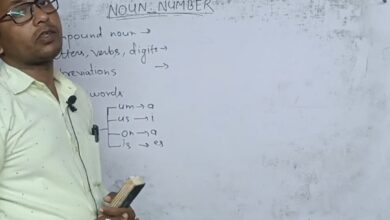 NOUN: NUMBER
pound noun →
tters, verbs, digits →
breviations →
words
um → a
us → i
on → a
is → es